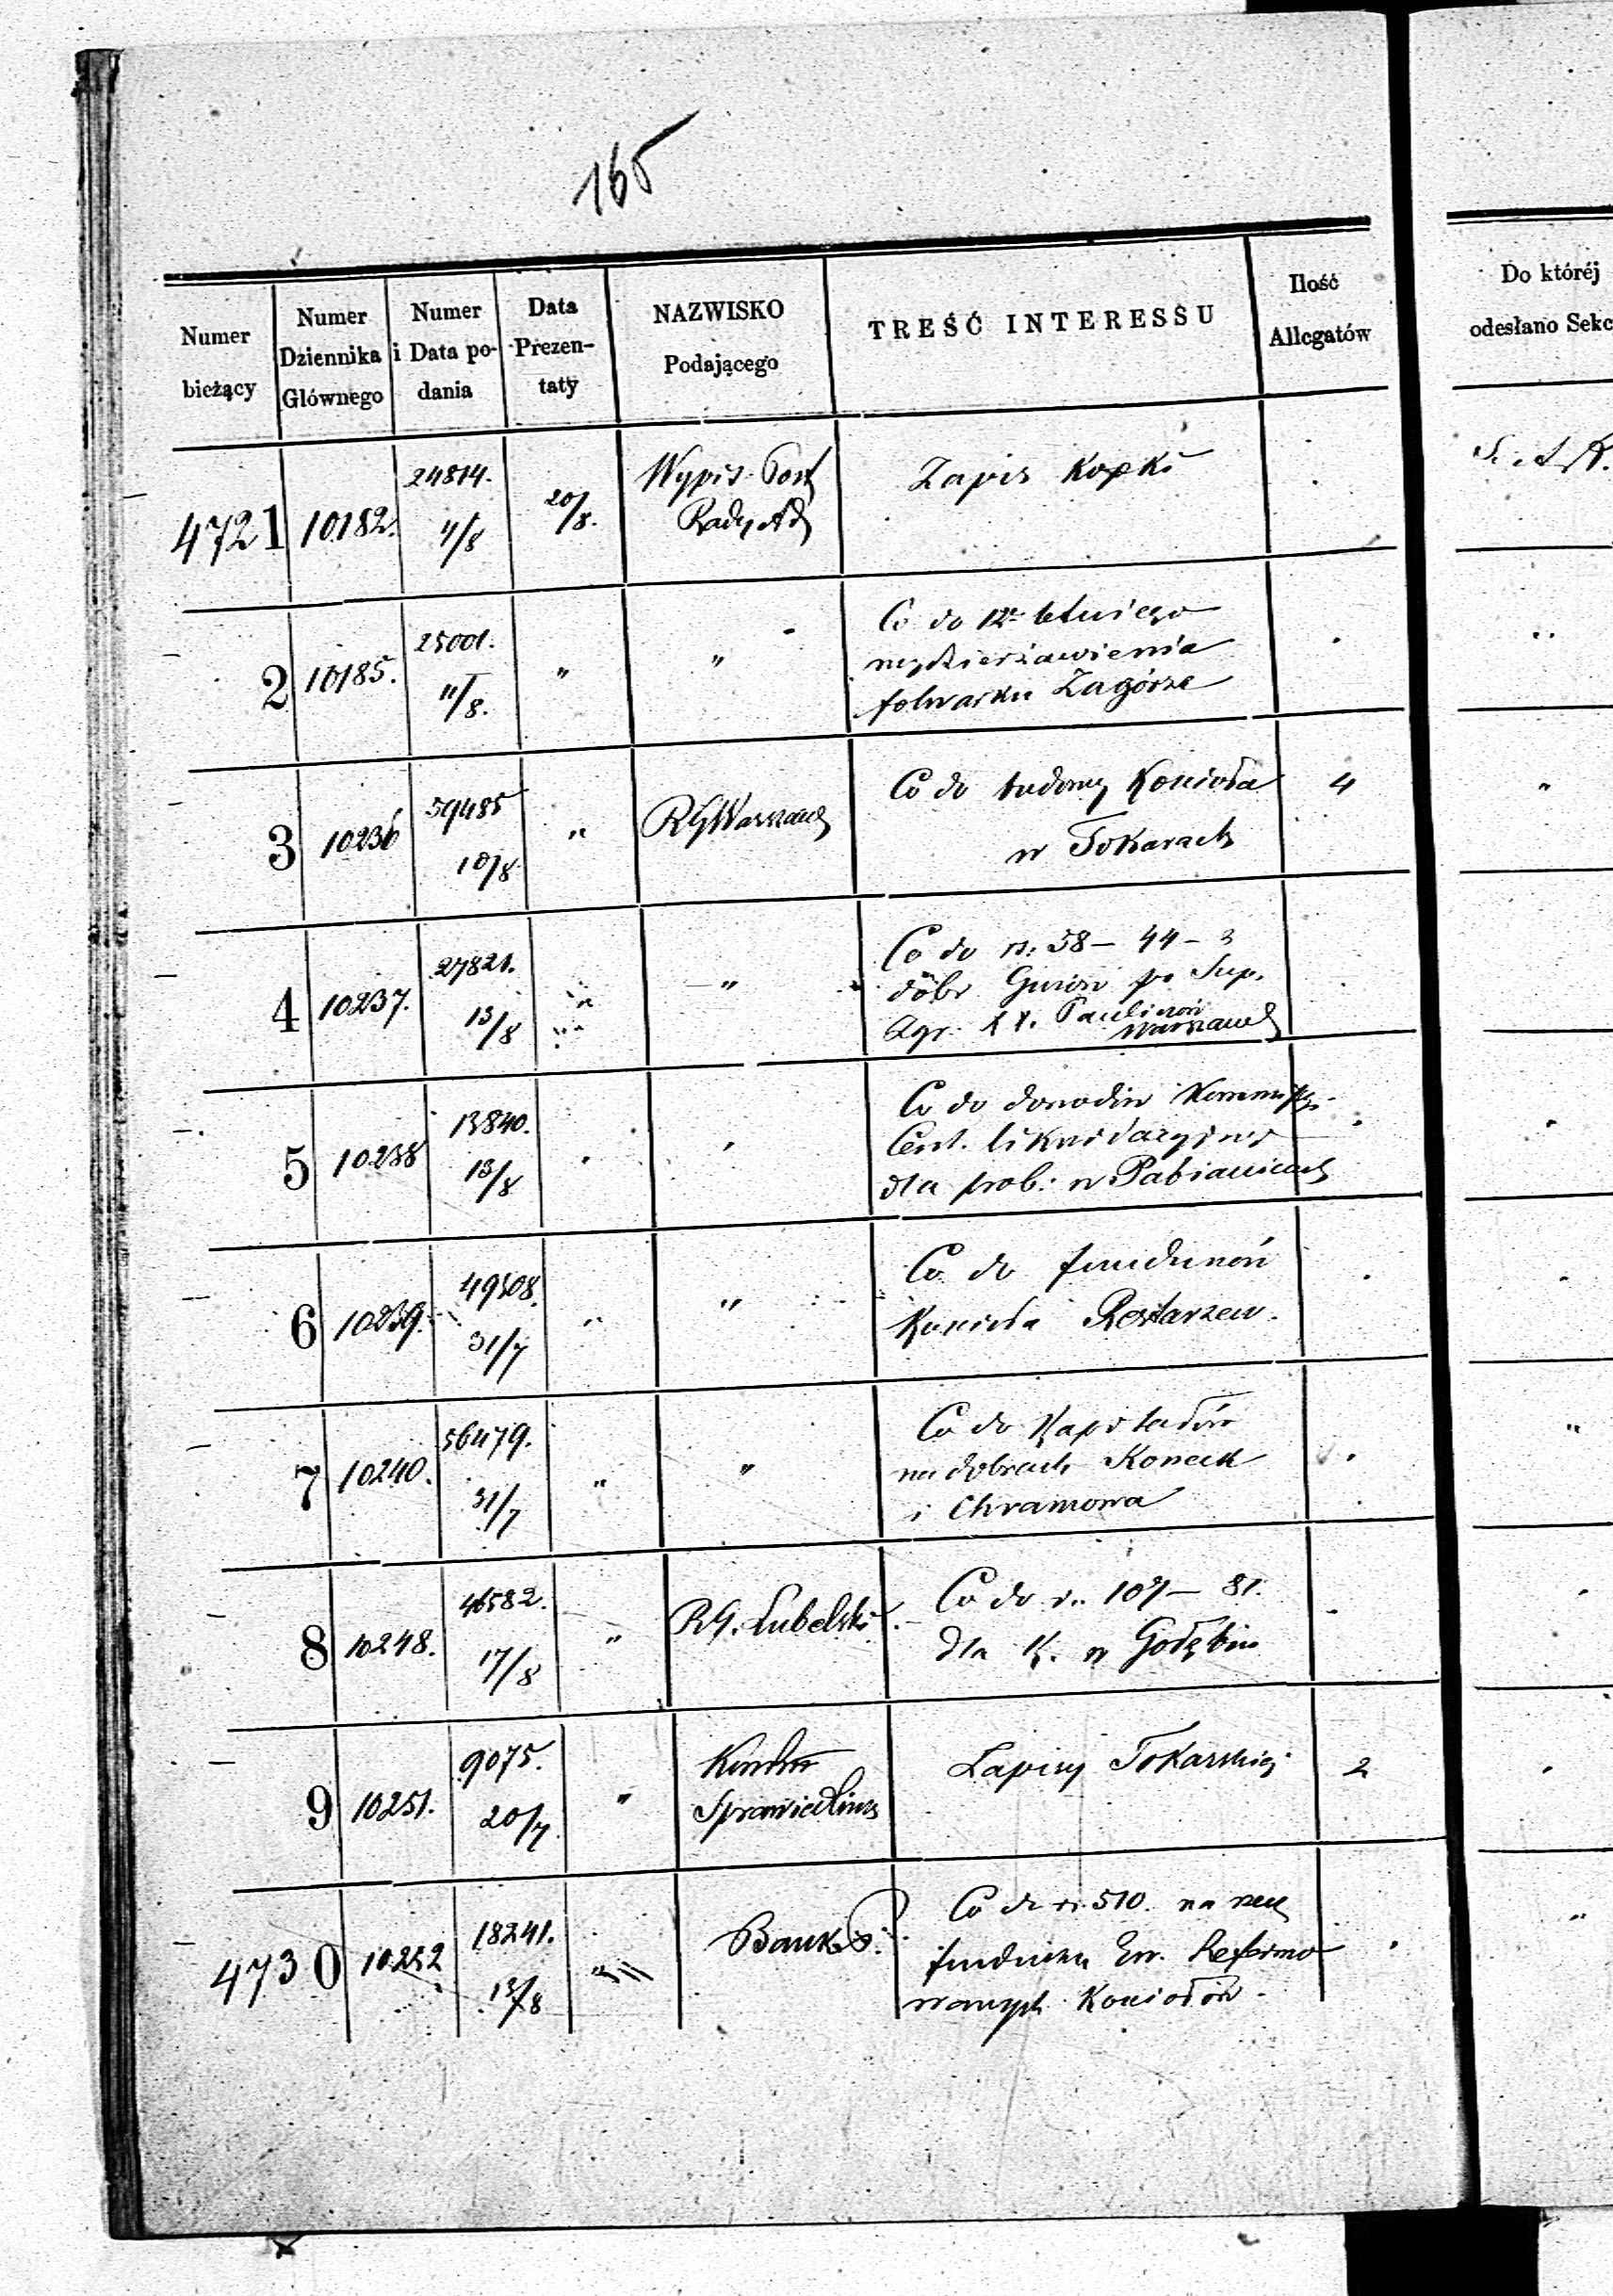 165
Numer bieżący
Numer Dziennika Głównego
Numer i Data podania
Data Prezentaty
NAZWISKO Podającego
TREŚĆ INTERESSU
Ilość Allegatów
Do któréj
odesłano Sekc
4721 10182. 24814. 11/8 20/8. Wypis Post Rady Ad Zapis Kopki
2 10185. 25001. 11/8. " " Co do 12 letniego
wydzierżawienia
folwarku Zagórze
3 10236 59485 10/8 " RGWarszaws Co do budowy Kościoła 4
w Tokarach
4 10237. 27821. 13/8 " " Co do rs: 58 – 44 – 3
dóbr po Sup.
Agr. XX. Paulinów
Warszaws
5 10238 13840. 13/8 " " Co do dowodów Kommissyi
Cent. likwidacyjnej
dla prob: w Pabianicach
6 10239. 49308. 31/7 " " Co do funduszów
Kościoła Restarzew.
7 10240. 56479. 31/7 " " Co do Kapitałów
na dobrach Koneck
i Chramowa
8 10248. 46582. 17/8 " RG. Lubelski Co do rs. 107 – 81.
dla K. w Gołębiu
9 10251. 9075. 20/7 " Sprawiedliwos Zapisy Tokarskiej 2
4730 10252 18241. 13/8 " Bank P. Co do rs. 510. na rzecz
funduszu Ew. Reformo
wanych Kościołów.